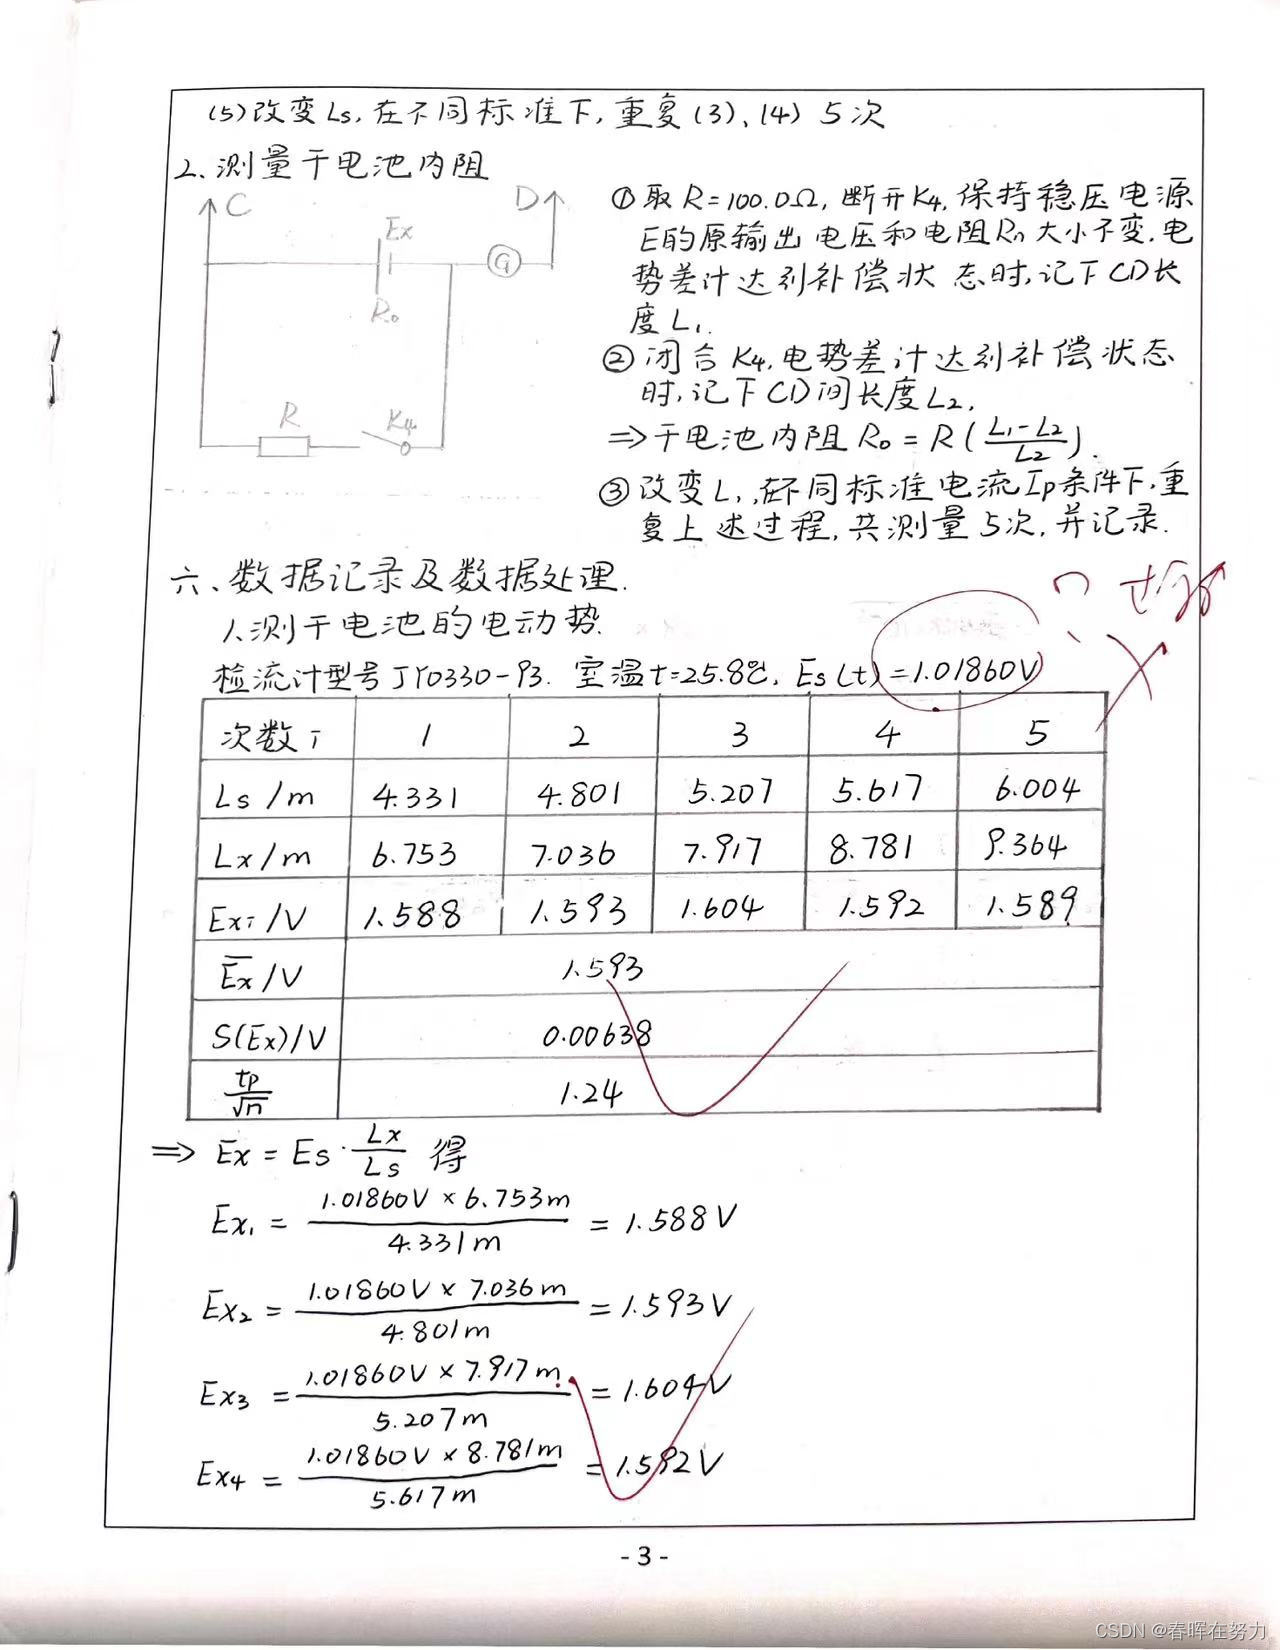 (5)改变Ls,在不同标准下,重复(3)、(4) 5次
2、测量干电池内阻
C
D
Ex
G
R₀
R
K4
①取R=100.0Ω,断开K4,保持稳压电源
E的原输出电压和电阻Rn大小不变.电
势差计达到补偿状态时,记下CD长
度L₁.
②闭合K4,电势差计达到补偿状态
时,记下CD间长度L₂,
⇒干电池内阻R₀=R(\frac{L₁-L₂}{L₂}).
③改变L,在不同标准电流Ip条件下,重
复上述过程,共测量5次,并记录.
六、数据记录及数据处理.
1、测干电池的电动势.
检流计型号JY0330-93. 室温t=25.8℃, Es(t)=1.01860V
次数i 1 2 3 4 5
Ls/m 4.331 4.801 5.207 5.617 6.004
Lx/m 6.753 7.036 7.917 8.781 9.364
Exi/V 1.588 1.593 1.604 1.592 1.589
Ēx/V 1.593
S(Ex)/V 0.00638
tp/√n 1.24
⇒ Ex = Es·\frac{Lx}{Ls} 得
Ex₁ = \frac{1.01860V×6.753m}{4.331m} = 1.588V
Ex₂ = \frac{1.01860V×7.036m}{4.801m} = 1.593V
Ex₃ = \frac{1.01860V×7.917m}{5.207m} = 1.604V
Ex₄ = \frac{1.01860V×8.781m}{5.617m} = 1.592V
- 3 -
CSDN @春晖在努力